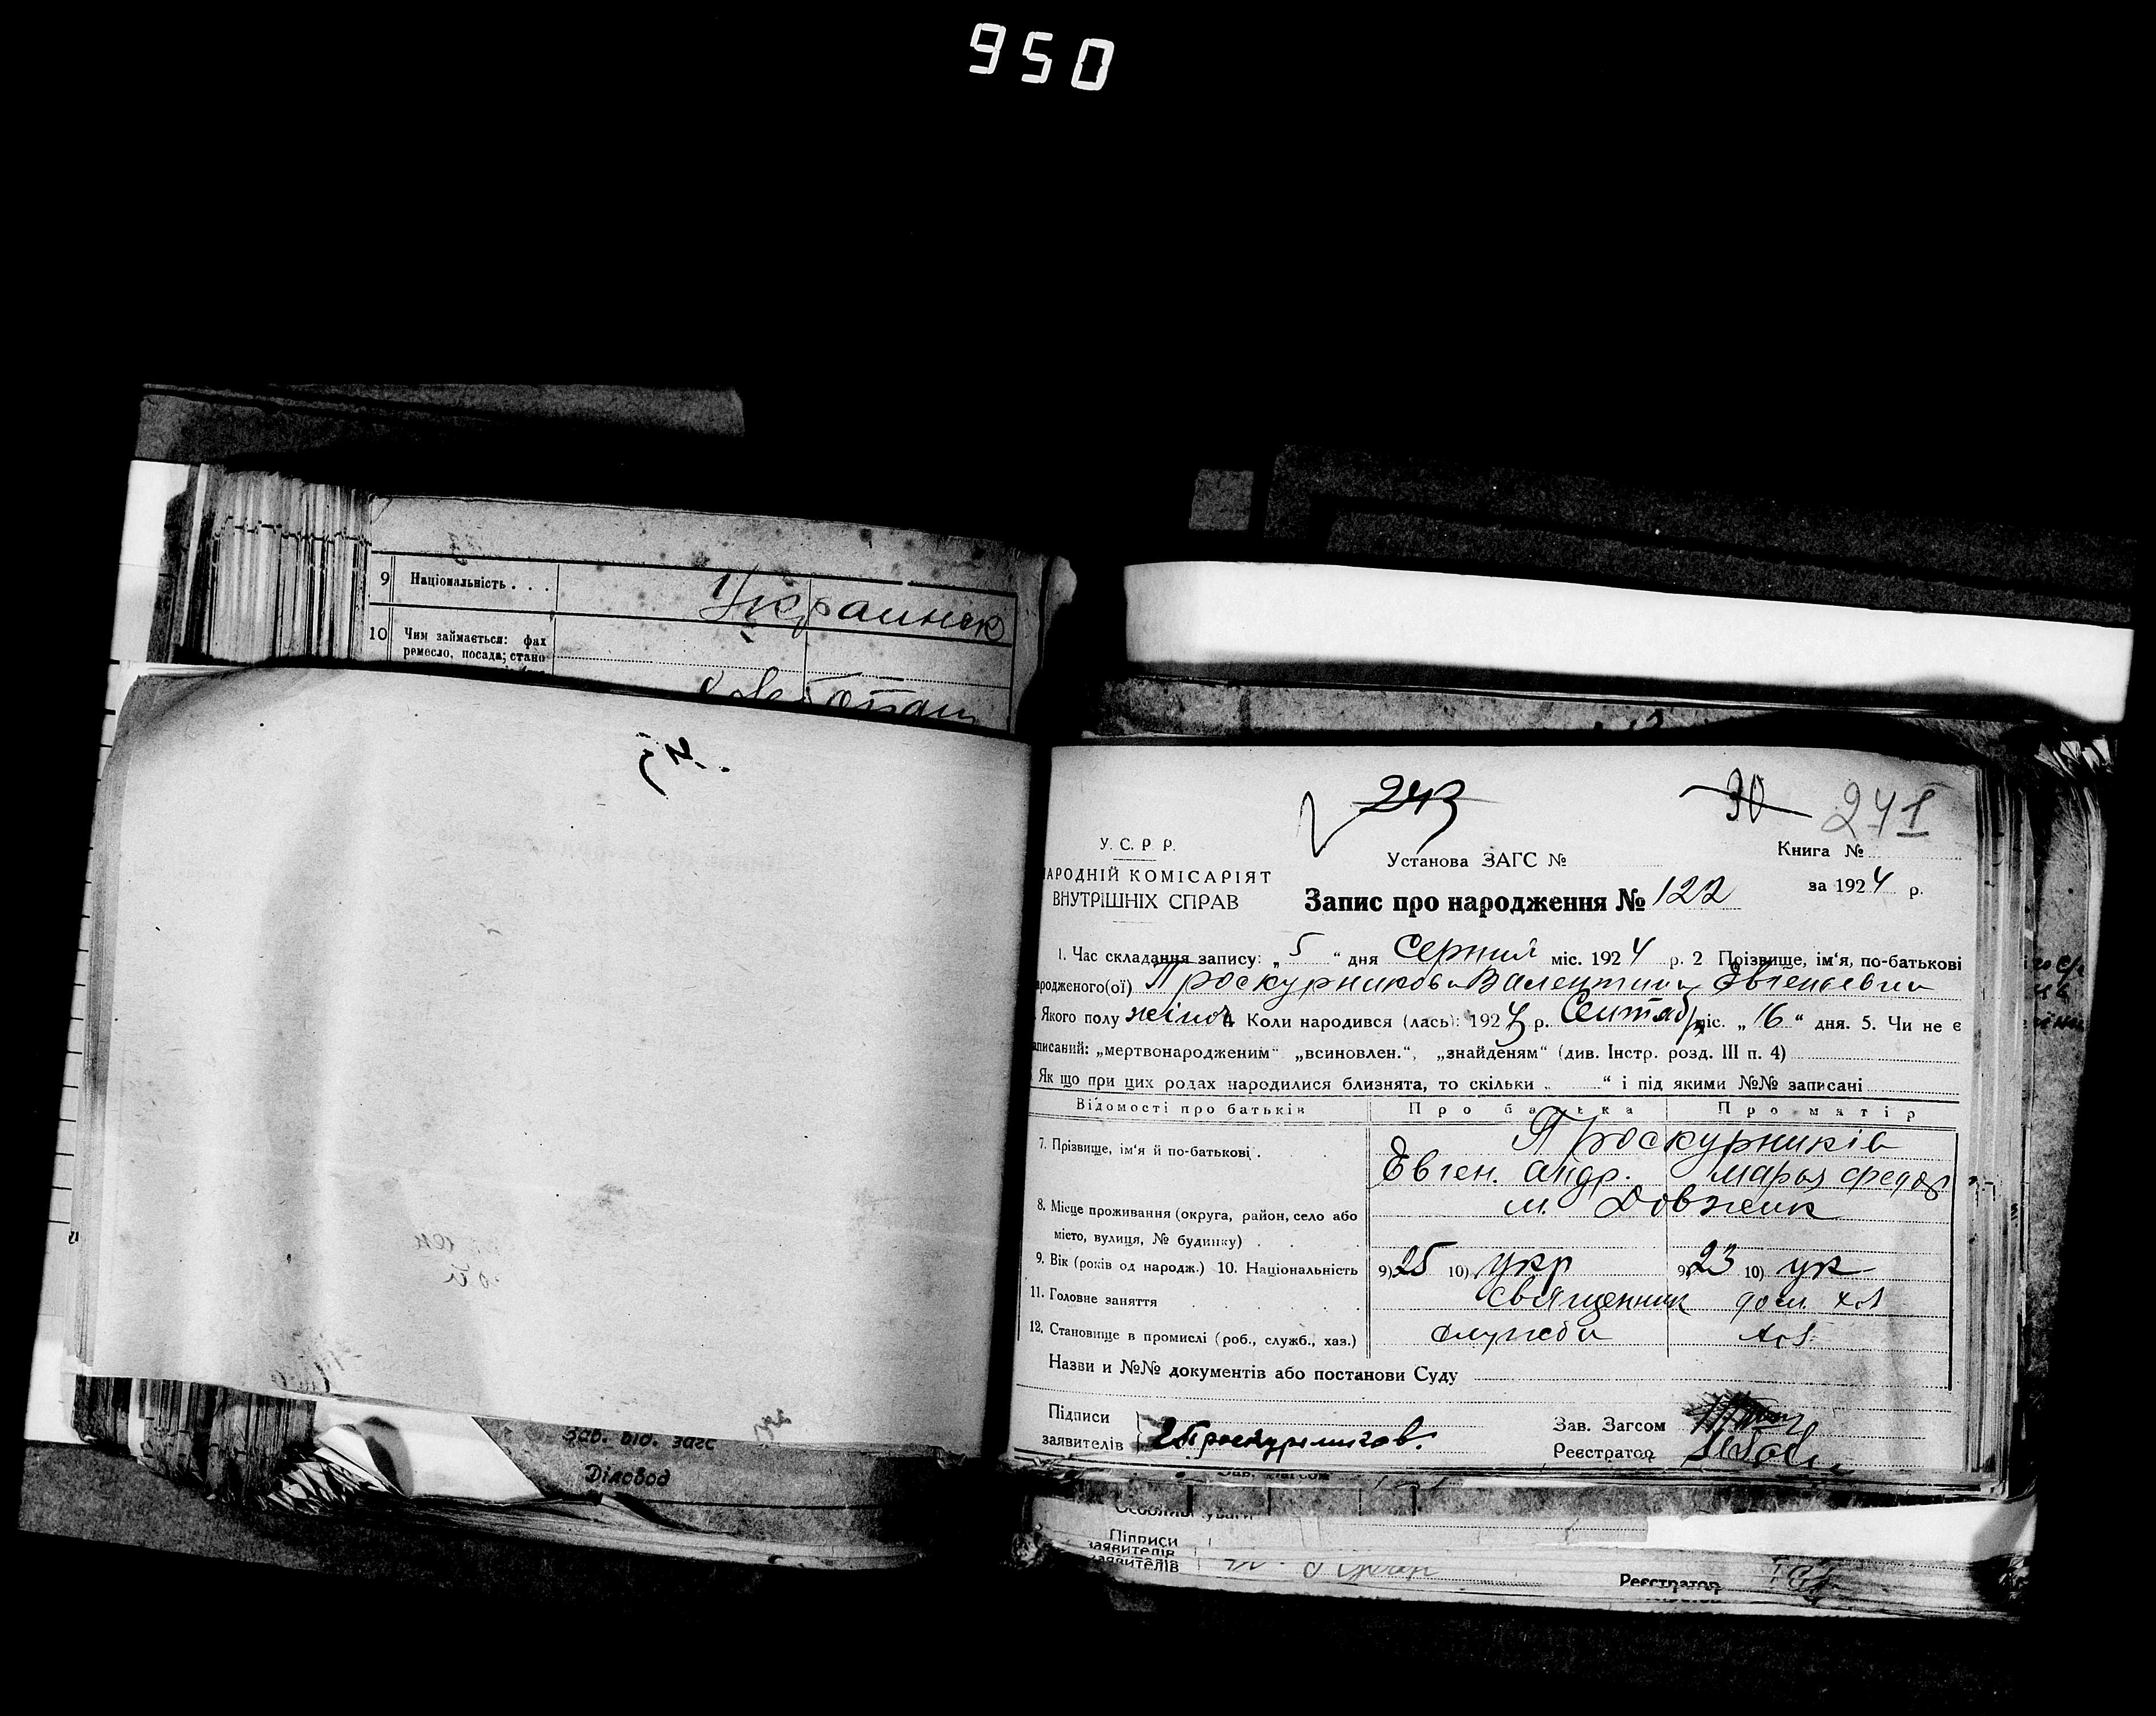 950
9 Національність . . .
Украинск
10 Чим займається: фах
ремесло, посада; стано
Зав. від. загс
Діловод
243 30 241
У. С. Р. Р.
НАРОДНІЙ КОМІСАРІЯТ
ВНУТРІШНІХ СПРАВ
Установа ЗАГС №
Книга №
за 1924 р.
Запис про народження № 122
1. Час складання запису: „ 5 “ дня Серпня міс. 1924 р. 2 Прізвище, ім‘я, по-батькові
родженого(ої) Проскурникова Валентина Евгеньевна
Якого полу жіноч 4. Коли народився (лась): 1923 р. Сентяб міс. „ 16 “ дня. 5. Чи не є
аписаний: „мертвонародженим“ „всиновлен.“, „знайденям“ (див. Інстр. розд. III п. 4)
Як що при цих родах народилися близнята, то скільки „ “ і під якими №№ записані
Відомості про батьків Про батька Про матір
7. Прізвище, ім‘я й по-батькові . Проскурників
Евген. Андр. Марья Федор
8. Місце проживання (округа, район, село або м. Довжик
місто, вулиця, № будинку) . .
9. Вік (років од народж.) 10. Національність 9) 25 10) укр 9) 23 10) ук
11. Головне заняття священник дом. хаз
12. Становище в промислі (роб., служб., хаз.) служби
Назви и №№ документів або постанови Суду
Підписи
заявителів Е Проскурников.
Зав. Загсом
Реєстратор
Зав. Загсом
Особливі уваги
Підписи
заявителів
заявителів
Реєстратор